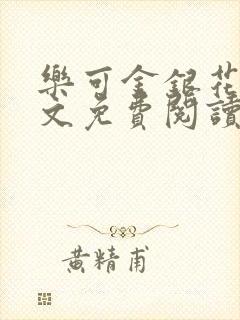 樂可金銀花
文免費閱讀
黃精甫